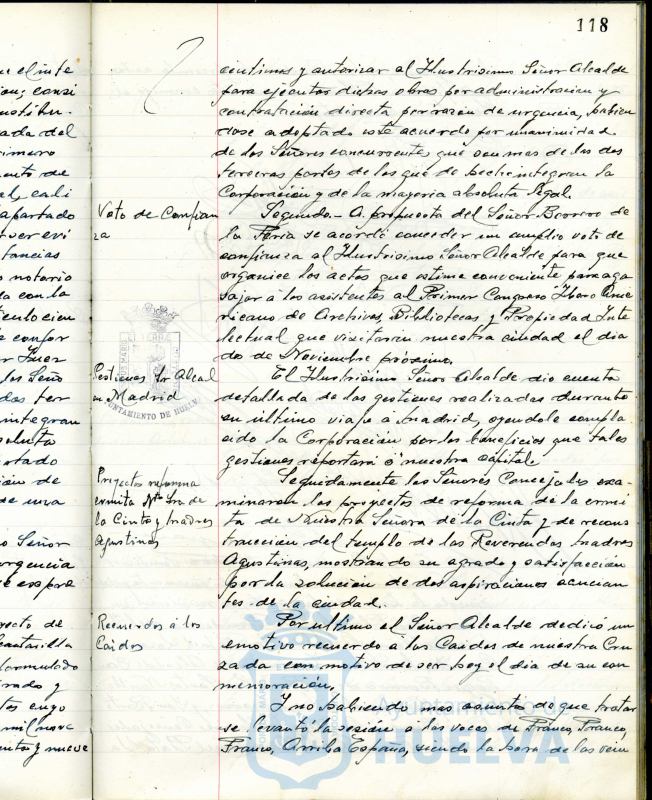 118
centimos y autorizar al Ilustrisimo Señor Alcalde
para ejecutar dichas obras por administracion y
contratacion directa por razon de urgencia, habien
dose adoptado este acuerdo por unanimidad
de los Señores concurrentes que son mas de las dos
terceras partes de los que de hecho integran la
Corporación y de la mayoria absoluta legal.
Voto de Confian
za
Segundo.- A propuesta del Señor Borrero de
la Feria se acordó conceder un amplio voto de
confianza al Ilustrisimo Señor Alcalde para que
organice los actos que estime conveniente para aga
sajar á los asistentes al Primer Congreso Ibero Ame
ricano de Archivos, Bibliotecas y Propiedad Inte
lectual que visitaran nuestra ciudad el dia
dos de Noviembre próximo.
Gestiones Sr Alcal
en Madrid
El Ilustrisimo Señor Alcalde dio cuenta
detallada de las gestiones realizadas durante
su último viaje á Madrid, oyendole compla
cida la Corporación por los beneficios que tales
gestiones reportará á nuestra capital.
Proyectos reforma
ermita Ntra Sra de
la Cinta y Madres
Agustinas
Seguidamente los Señores Concejales exa-
minaron los proyectos de reforma de la ermi
ta de Nuestra Señora de la Cinta y de recons
truccion del templo de las Reverendas Madres
Agustinas, mostrando su agrado y satisfacción
por la solución de dos aspiraciones acucian
tes de la ciudad.
Recuerdos á los
Caidos
Por ultimo el Señor Alcalde dedicó un
emotivo recuerdo á los Caidos de nuestra Cru
zada con motivo de ser hoy el dia de su con
memoración.
Y no habiendo mas asunto de que tratar
se levantó la sesión á las voces de Franco, Franco,
Franco, Arriba España, siendo la hora de las vein
AYUNTAMIENTO DE HUELVA
Ayuntamiento de
HUELVA